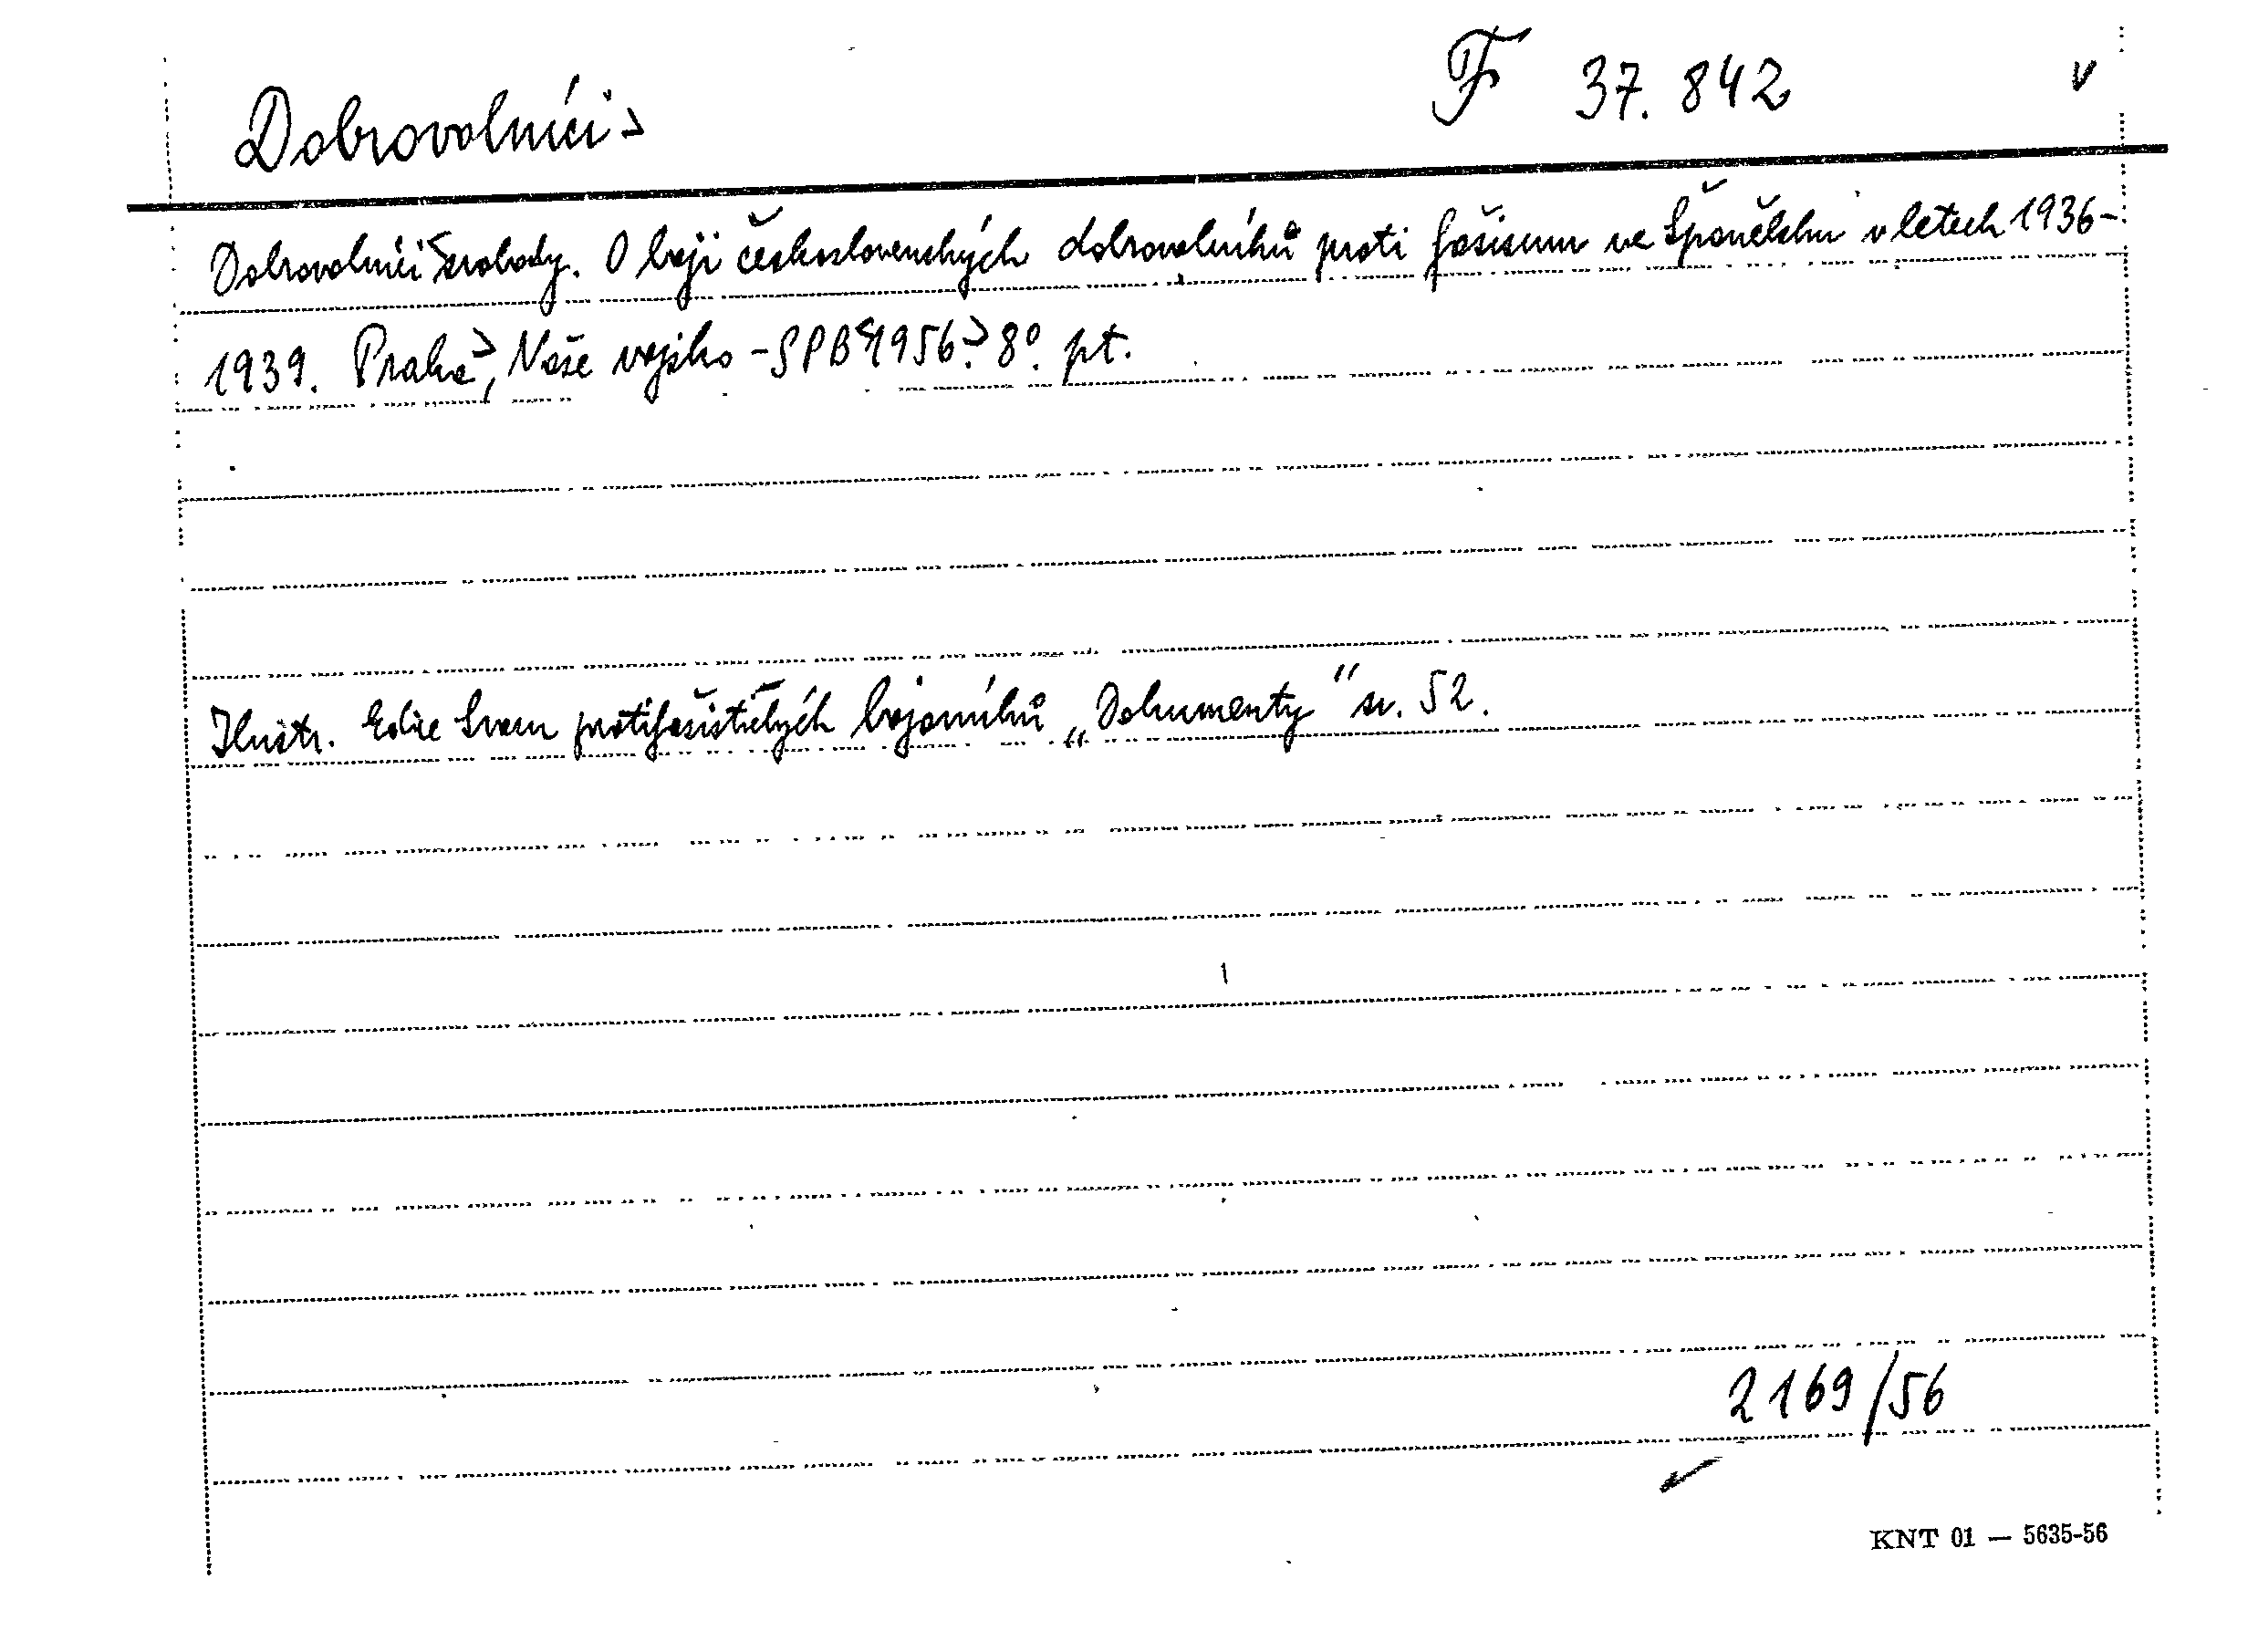 Dobrovolníci> F 37.842 v
Dobrovolníci <svobody. O boji československých dobrovolníků proti fašismu ve Španělsku v letech 1936-
1939. Praha>, Naše vojsko - SPB <1956.> 8°. pt.
Ilustr. Edice Svazu protifašistických bojovníků „Dokumenty" sv. 52.
2169/56
KNT 01 — 5635-56